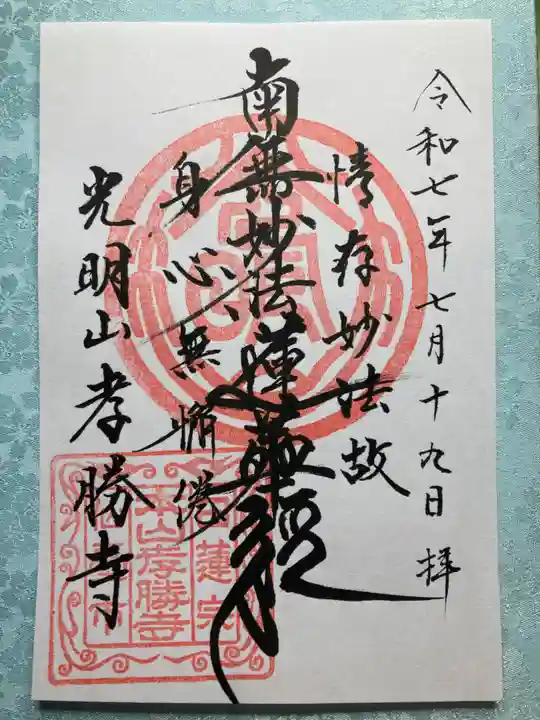 令和七年七月十九日 拝
情存妙法故
南無妙法蓮華経
身心無懈倦
光明山孝勝寺
蓮宗
本山孝勝寺